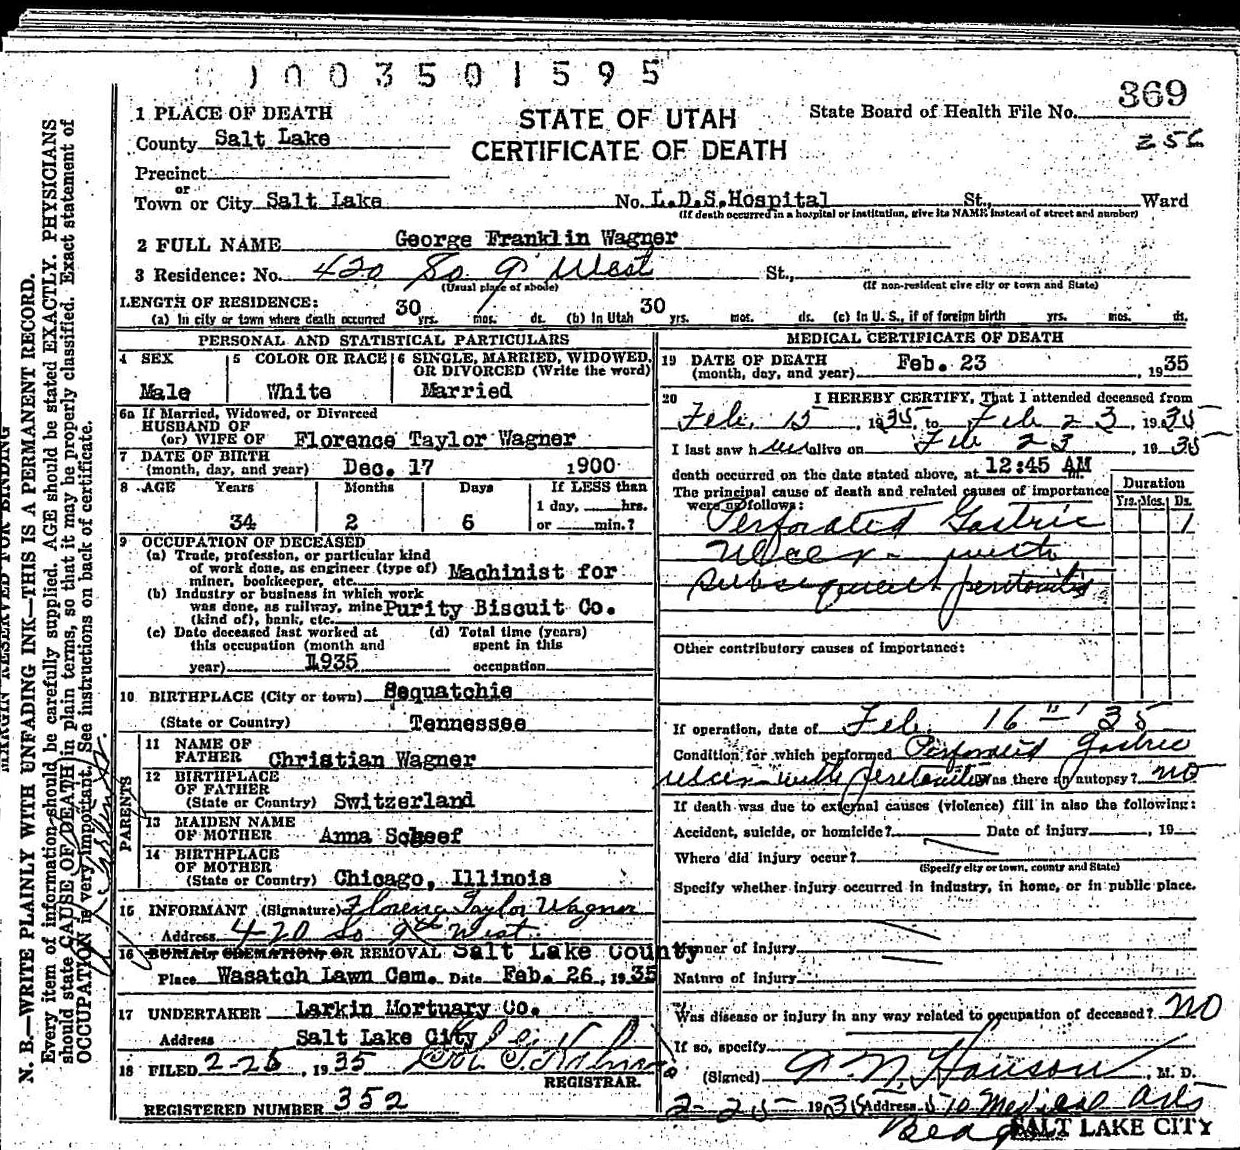 003501595
369
256
STATE OF UTAH
CERTIFICATE OF DEATH
State Board of Health File No.
1 PLACE OF DEATH
County Salt Lake
Precinct
or
Town or City Salt Lake No. L.D.S.Hospital St., Ward
(If death occurred in a hospital or institution, give its NAME instead of street and number)
2 FULL NAME George Franklin Wagner
3 Residence: No. 420 So. 9 West St.,
(Usual place of abode) (If non-resident give city or town and State)
LENGTH OF RESIDENCE:
(a) In city or town where death occurred 30 yrs. mos. ds. (b) In Utah 30 yrs. mos. ds. (c) In U. S., if of foreign birth yrs. mos. ds.
PERSONAL AND STATISTICAL PARTICULARS
4 SEX
Male
5 COLOR OR RACE
White
6 SINGLE, MARRIED, WIDOWED, OR DIVORCED (Write the word)
Married
6a If Married, Widowed, or Divorced
HUSBAND OF
(or) WIFE OF Florence Taylor Wagner
7 DATE OF BIRTH
(month, day, and year) Dec. 17 1900
8 AGE Years Months Days If LESS than
1 day, hrs.
34 2 6 or min.?
9 OCCUPATION OF DECEASED
(a) Trade, profession, or particular kind
of work done, as engineer (type of)
miner, bookkeeper, etc. Machinist for
(b) Industry or business in which work
was done, as railway, mine
(kind of), bank, etc. Purity Biscuit Co.
(c) Date deceased last worked at
this occupation (month and
year) 1935
(d) Total time (years)
spent in this
occupation
10 BIRTHPLACE (City or town) Sequatchie
(State or Country) Tennessee
PARENTS
11 NAME OF
FATHER Christian Wagner
12 BIRTHPLACE
OF FATHER
(State or Country) Switzerland
13 MAIDEN NAME
OF MOTHER Anna Scheef
14 BIRTHPLACE
OF MOTHER
(State or Country) Chicago, Illinois
15 INFORMANT (Signature) Florence Taylor Wagner
Address 420 So 9th West
16 BURIAL, CREMATION, OR REMOVAL Salt Lake County
Place Wasatch Lawn Cem. Date Feb. 26, 1935
17 UNDERTAKER Larkin Mortuary Co.
Address Salt Lake City
18 FILED 2-26, 1935
REGISTRAR.
REGISTERED NUMBER 352
MEDICAL CERTIFICATE OF DEATH
19 DATE OF DEATH
(month, day, and year) Feb. 23 1935
20 I HEREBY CERTIFY, That I attended deceased from
Feb. 15, 1935, to Feb 23, 1935
I last saw him alive on Feb 23, 1935
death occurred on the date stated above, at 12:45 AM m.
The principal cause of death and related causes of importance
were as follows:
Duration
Yrs. Mos. Ds.
Perforated Gastric 1
Ulcer - with
subsequent peritonitis
Other contributory causes of importance:
If operation, date of Feb. 16 - '35
Condition for which performed Perforated Gastric
ulcer with peritonitis Was there an autopsy? no
If death was due to external causes (violence) fill in also the following:
Accident, suicide, or homicide? Date of injury , 19
Where did injury occur?
(Specify city or town, county and State)
Specify whether injury occurred in industry, in home, or in public place.
Manner of injury
Nature of injury
Was disease or injury in any way related to occupation of deceased? no
If so, specify
(Signed) Hanson, M. D.
2-25 1935 Address 510 Medical Arts
Bldg SALT LAKE CITY
MARGIN RESERVED FOR BINDING
N. B.—WRITE PLAINLY WITH UNFADING INK—THIS IS A PERMANENT RECORD.
Every item of information should be carefully supplied. AGE should be stated EXACTLY. PHYSICIANS
should state CAUSE OF DEATH in plain terms, so that it may be properly classified. Exact statement of
OCCUPATION is very important. See instructions on back of certificate.